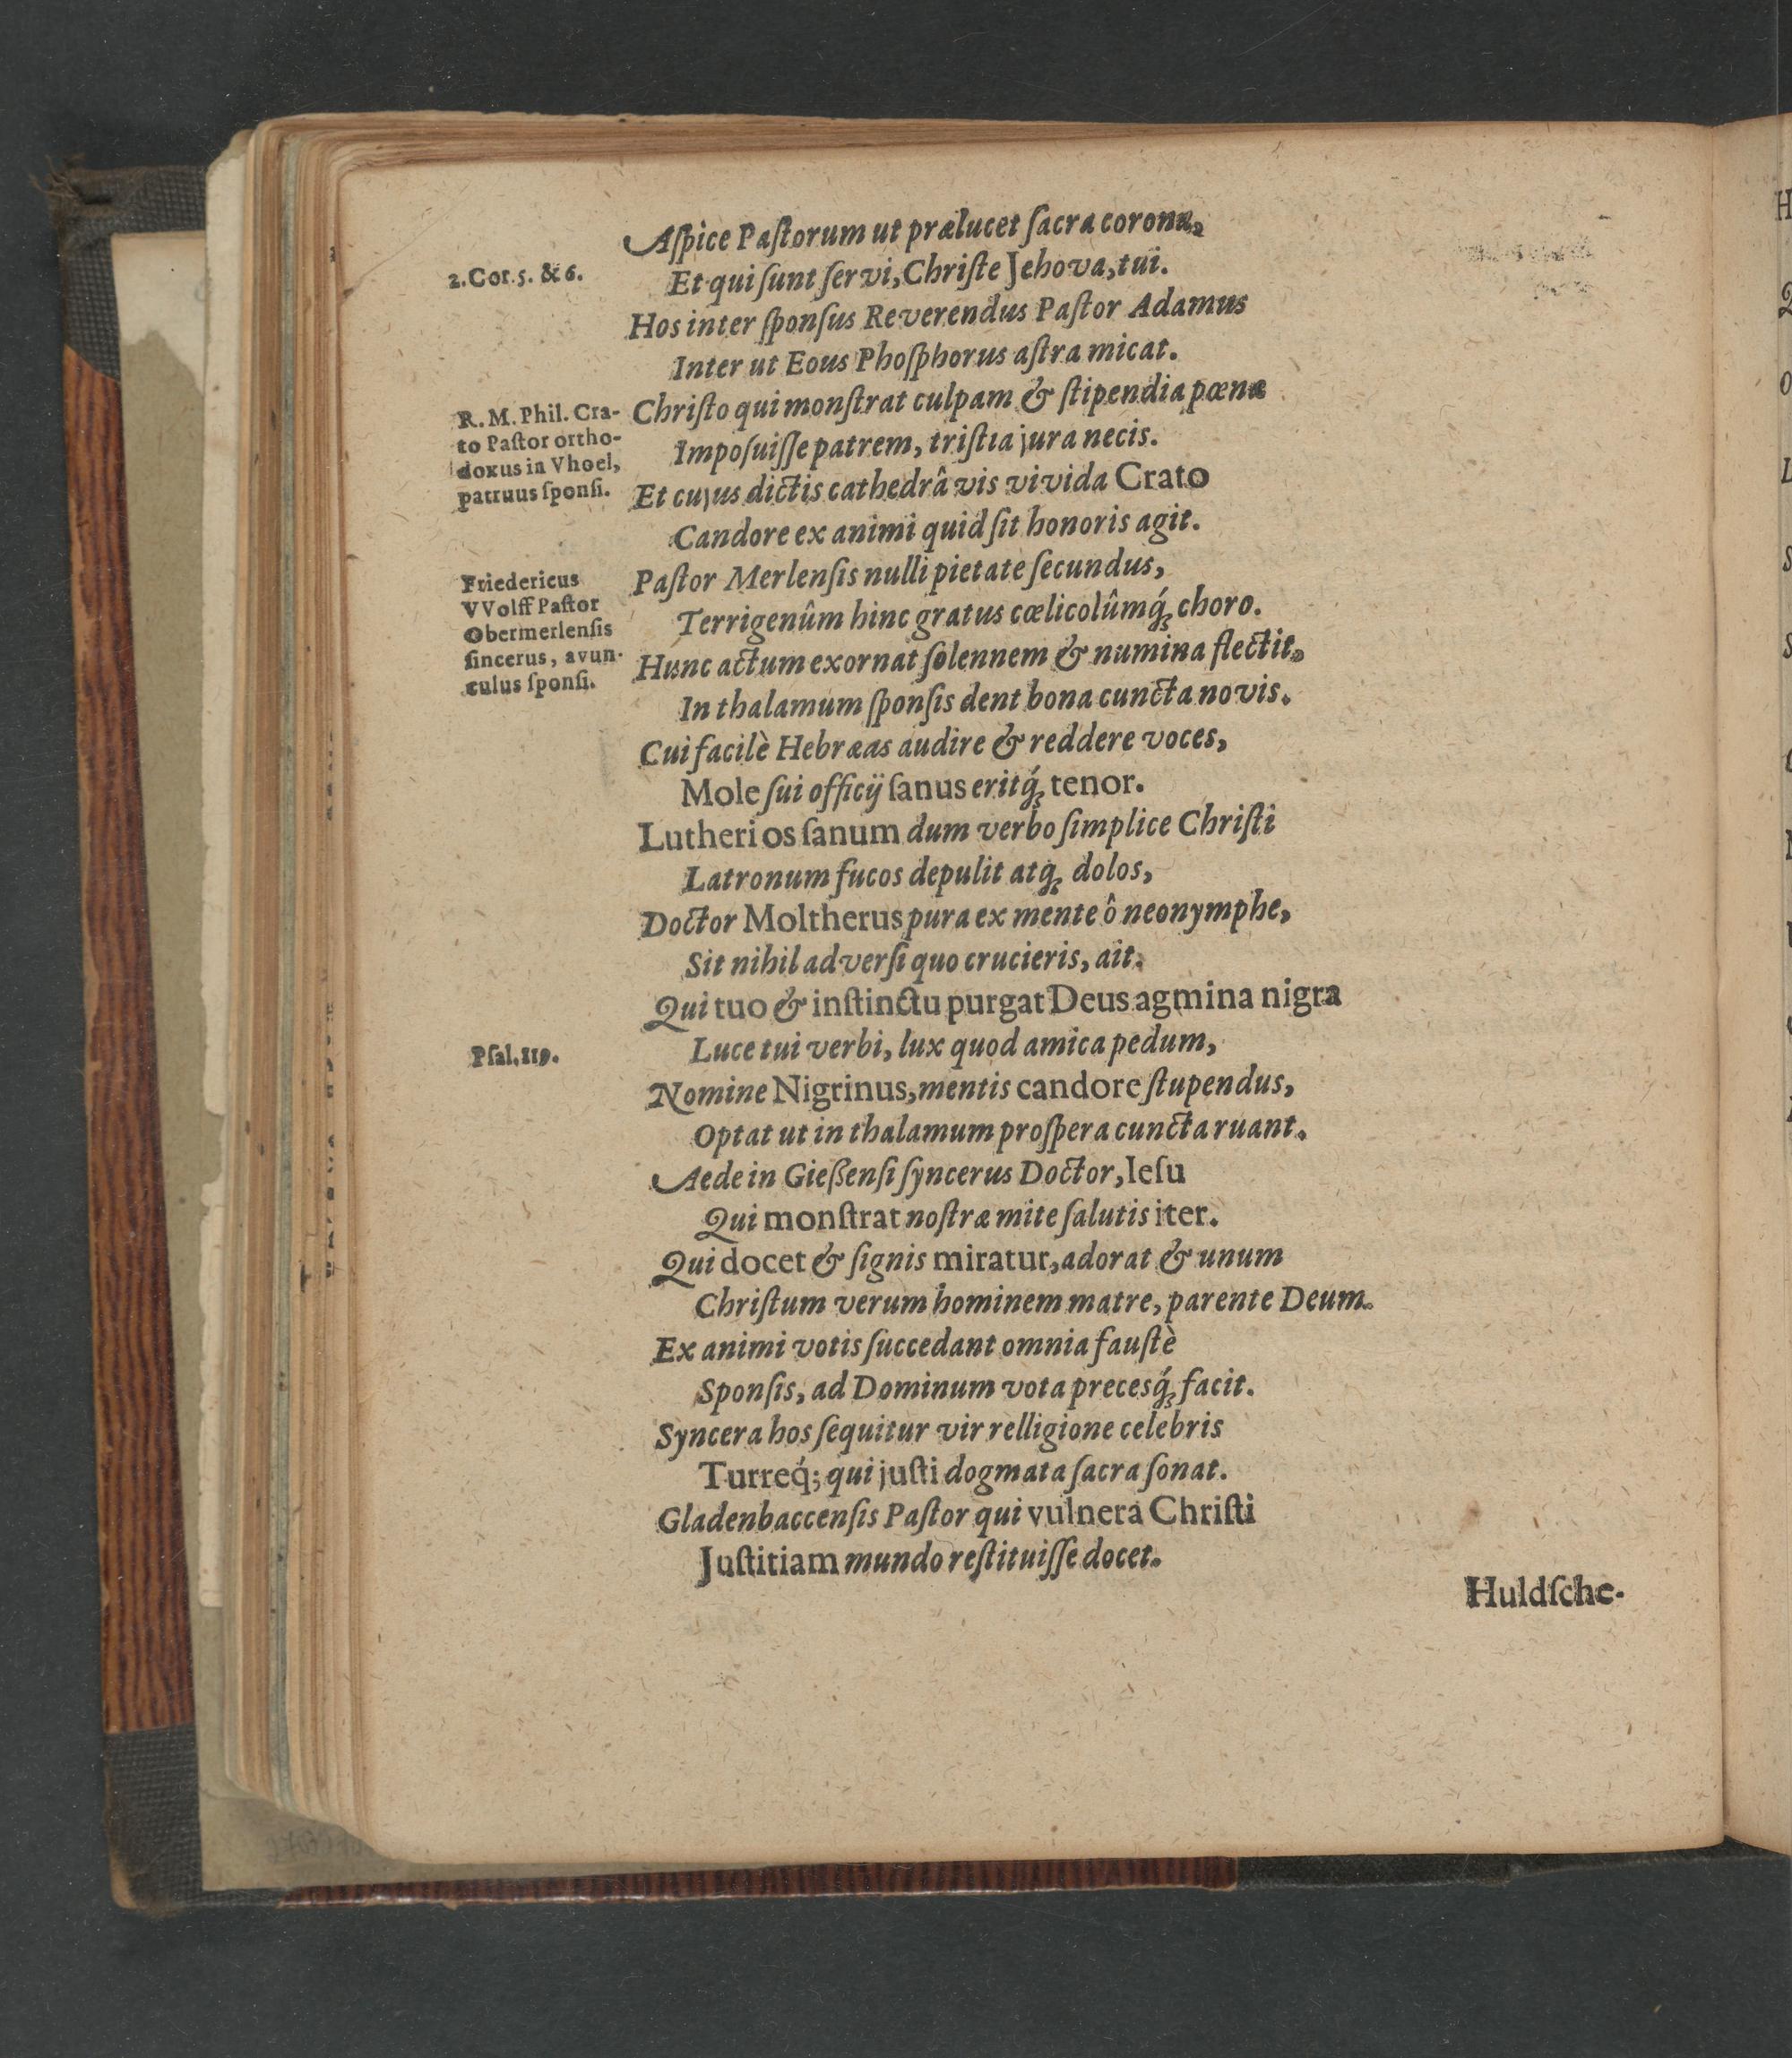 Aſpice Paſtorum ut prælucet ſacra corona,
2. Cor. 5. & 6.
Et qui ſunt ſervi, Chriſte Jehova, tui.
Hos inter ſponſus Reverendus Paſtor Adamus
Inter ut Eous Phoſphorus aſtra micat.
R. M. Phil. Cra-
to Paſtor ortho-
doxus in Vhoel,
patruus ſponſi.
Chriſto qui monſtrat culpam & ſtipendia pœnæ
Impoſuiſſe patrem, triſtia jura necis.
Et cujus dictis cathedrâ vis vivida Crato
Candore ex animi quid ſit honoris agit.
Friedericus
VVolff Paſtor
Obermerlenſis
ſincerus, avun-
culus ſponſi.
Paſtor Merlenſis nulli pietate ſecundus,
Terrigenûm hinc gratus cœlicolûmq́ꝫ choro.
Hunc actum exornat ſolennem & numina flectit,
In thalamum ſponſis dent bona cuncta novis.
Cui facilè Hebræas audire & reddere voces,
Mole ſui officij ſanus eritq́ꝫ tenor.
Lutheri os ſanum dum verbo ſimplice Chriſti
Latronum fucos depulit atqꝫ dolos,
Doctor Moltherus pura ex mente ô neonymphe,
Sit nihil adverſi quo crucieris, ait.
Qui tuo & inſtinctu purgat Deus agmina nigra
Pſal. 119.
Luce tui verbi, lux quod amica pedum,
Nomine Nigrinus, mentis candore ſtupendus,
Optat ut in thalamum proſpera cuncta ruant.
Aede in Gießenſi ſyncerus Doctor, Ieſu
Qui monſtrat noſtræ mite ſalutis iter.
Qui docet & ſignis miratur, adorat & unum
Chriſtum verum hominem matre, parente Deum.
Ex animi votis ſuccedant omnia fauſtè
Sponſis, ad Dominum vota precesq́ꝫ facit.
Syncera hos ſequitur vir relligione celebris
Turreq́; qui juſti dogmata ſacra ſonat.
Gladenbaccenſis Paſtor qui vulnera Chriſti
Juſtitiam mundo reſtituiſſe docet.
Huldſche-